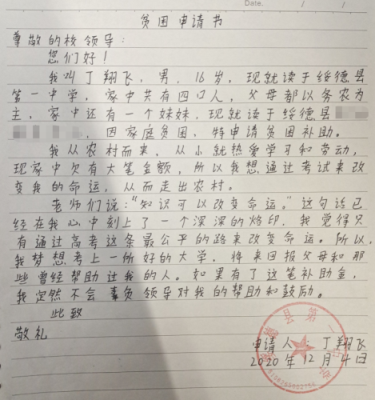 Date.
贫困申请书
尊敬的校领导:
您们好!
我叫丁翔飞,男,16岁,现就读于绥德县
第一中学,家中共有四口人,父母都以务农为
主,家中还有一个妹妹,现就读于绥德县
,因家庭贫困,特申请贫困补助。
我从农村而来,从小就热爱学习和劳动,
现家中欠有大笔金额,所以我想通过考试来改
变我的命运,从而走出农村。
老师们说:"知识可以改变命运"这句话已
经在我心中刻上了一个深深的烙印,我觉得只
有通过高考这条最公平的路来改变命运。所以,
我梦想考上一所好的大学,将来回报父母和那
些曾经帮助过我的人。如果有了这笔补助金,
我定然不会辜负领导对我的帮助和鼓励。
此致
敬礼
申请人:丁翔飞
2020年12月4日